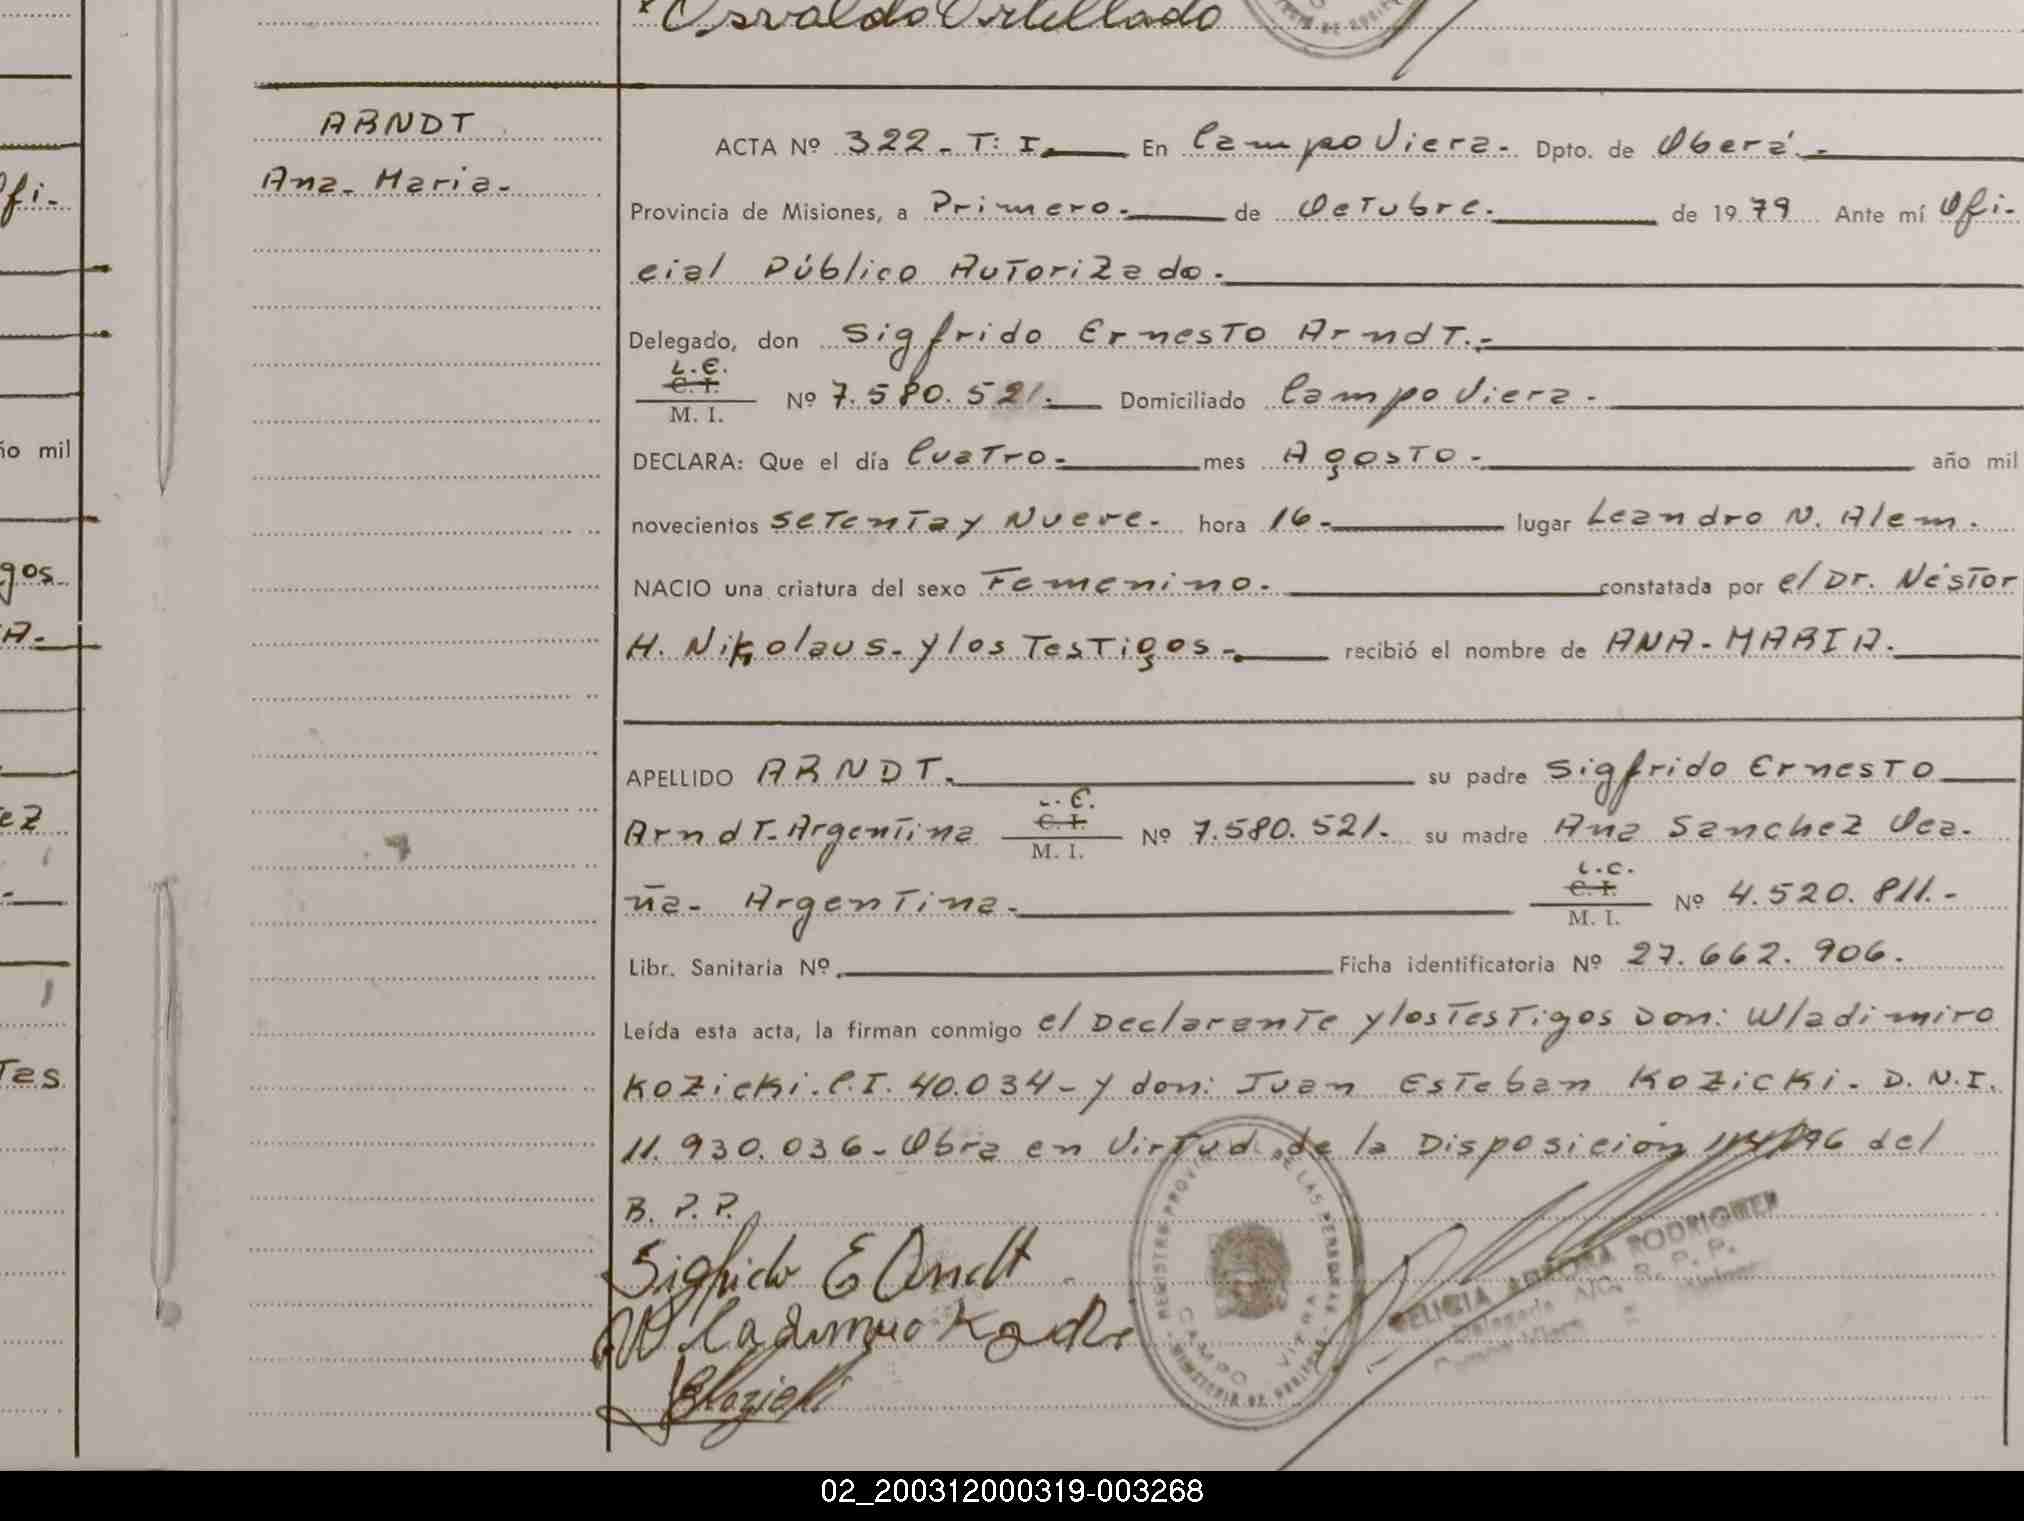 Osvaldo Ortellado
ARNDT
Ana- Maria-
ACTA Nº 322- T: I. En Campo Viera- Dpto. de Oberá.-
Provincia de Misiones, a Primero.- de Octubre.- de 1979 Ante mí Ofi-
cial Público Autorizado.-
Delegado, don Sigfrido Ernesto Arndt.-
L.E.
C. I.
M. I.
Nº 7.580.521.- Domiciliado Campo Viera-
DECLARA: Que el día Cuatro.- mes Agosto.- año mil
novecientos setenta y Nueve- hora 16.- lugar Leandro N. Alem.
NACIO una criatura del sexo Femenino.- constatada por el Dr. Néstor
H. Nikolaus- y los Testigos-. recibió el nombre de ANA-MARIA.-
APELLIDO ARNDT.- su padre Sigfrido Ernesto
Arndt-Argentina
L.E.
C. I.
M. I.
Nº 7.580.521.- su madre Ana Sanchez Vea-
ña- Argentina-
L.C.
C. I.
M. I.
Nº 4.520.811.-
Libr. Sanitaria Nº Ficha identificatoria Nº 27.662.906.
Leída esta acta, la firman conmigo el Declarante y los Testigos Don: Wladimiro
Kozicki. C.I. 40.034- y don: Juan Esteban Kozicki- D.N.I.
11.930.036- Obra en Virtud de la Disposición del
B. P. P.
Sigfrido E Arndt
Wladimiro
REGISTRO PROVIN DE LAS PERSONAS
CAMPO VIERA
MINISTERIO DE GOBIERNO
FELICIA AURORA RODRIGUEZ
Delegada A/C. R. P. P.
Campo Viera
ofi-
ño mil
gos
A.-
ez
Tes
02_200312000319-003268